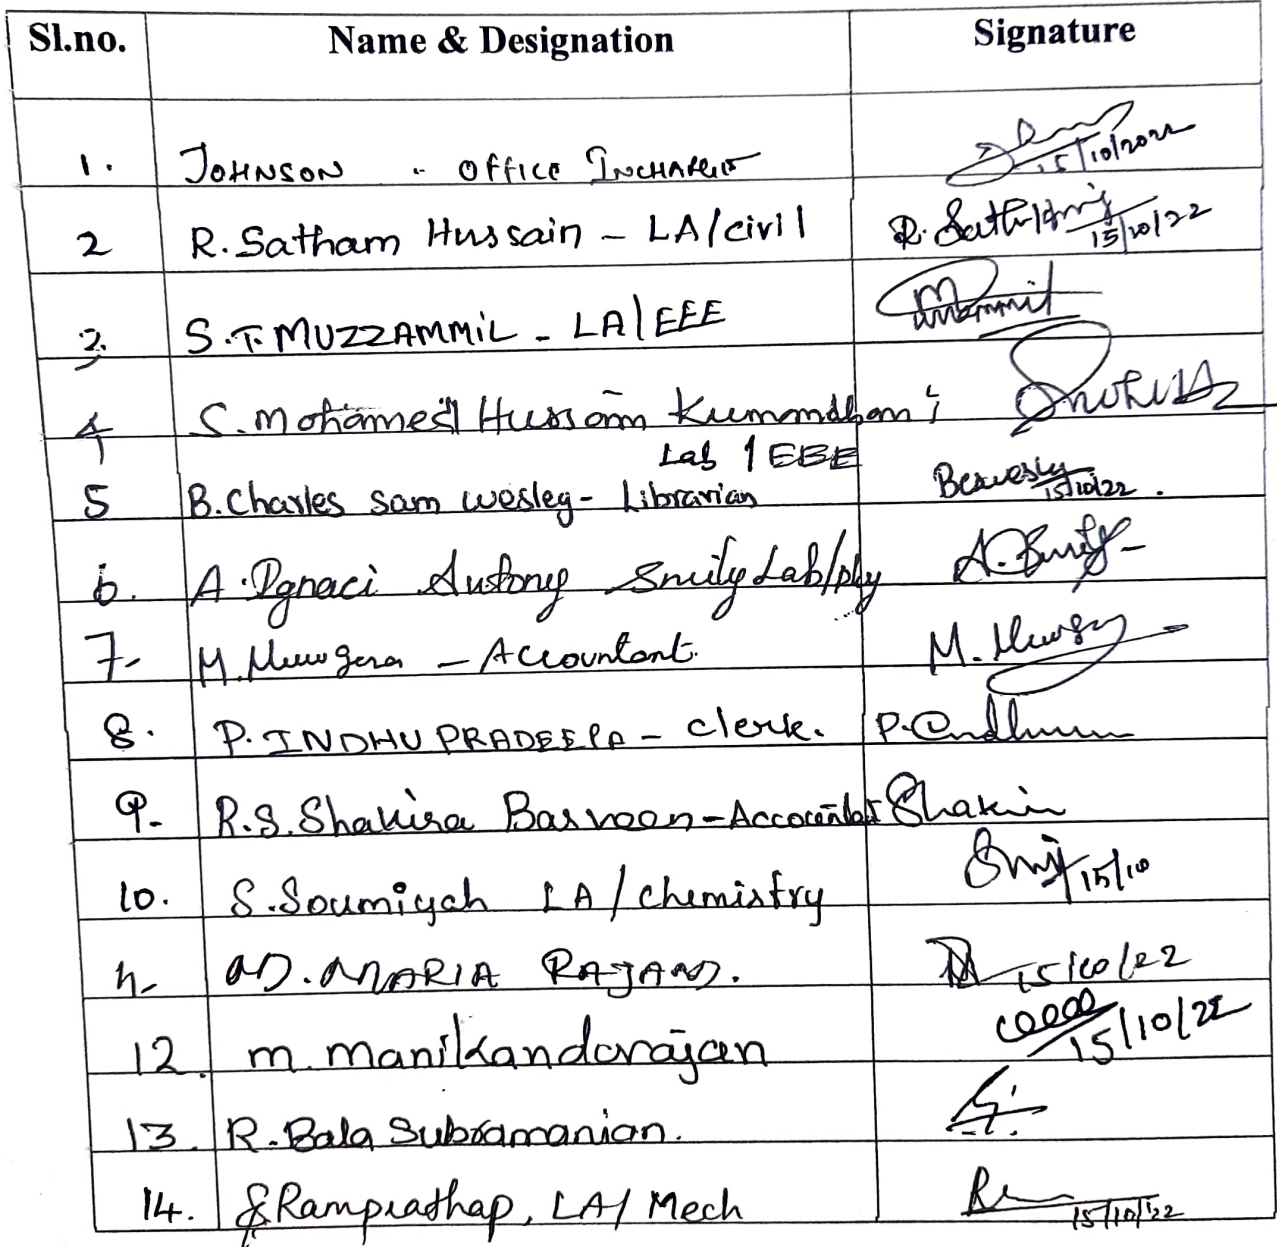 Sl.no. Name & Designation Signature
1. JOHNSON - OFFICE INCHARGE 15/10/2022
2 R. Satham Hussain - LA/civil R. 15/10/22
3. S.T. MUZZAMMIL - LA/EEE
4 S. Mohamed Hussain
Lab / EEE
5 B. Charles Sam Wesley - Librarian 15/10/22.
6. A. Ignaci Antony Smily Lab/phy A.
7. M. - Accountant. M.
8. P. INDHU PRADEEPA - clerk. P.
9. R.S. Shakira - Accountant
10. S. Soumiyah LA/chemistry 15/10
11. D. MARIA RAJAN. 15/10/22
12. M. Manikandarajan 15/10/22
13. R. Bala Subramanian.
14. Ramprathap, LA/Mech 15/10/22